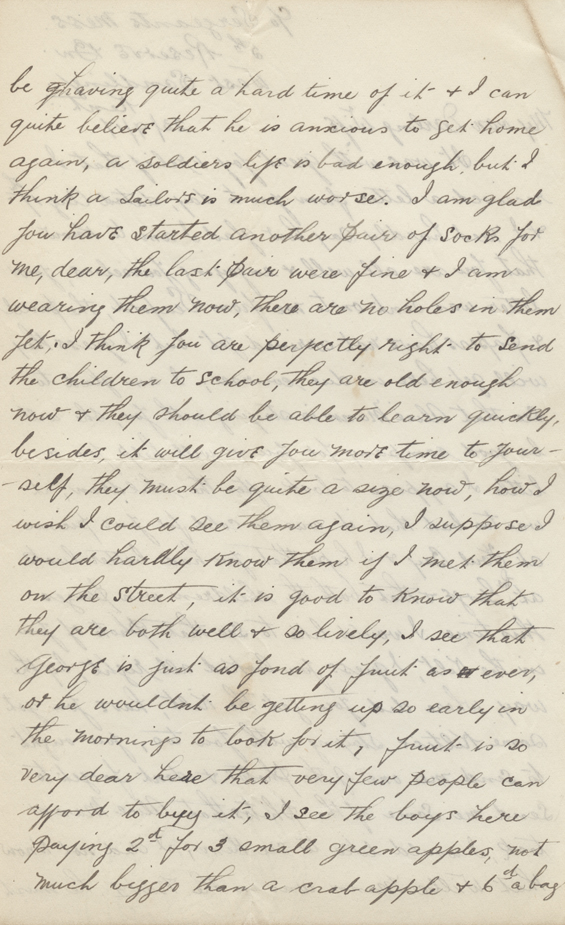 be having quite a hard time of it & I can
quite believe that he is anxious to get home
again, a soldiers life is bad enough, but I
think a sailors is much worse. I am glad
you have started another pair of socks for
me, dear, the last pair were fine & I am
wearing them now, there are no holes in them
yet. I think you are perfectly right to send
the children to school, they are old enough
now & they should be able to learn quickly,
besides, it will give you more time to your-
-self, they must be quite a size now, how I
wish I could see them again, I suppose I
would hardly know them if I met them
on the street, it is good to know that
they are both well & so lively, I see that
George is just as fond of fruit as ever,
or he wouldnt be getting up so early in
the mornings to look for it, fruit is so
very dear here that very few people can
afford to buy it, I see the boys here
paying 2d for 3 small green apples, not
much bigger than a crab apple & 6d a bag